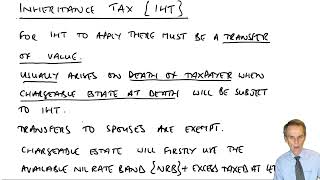 INHERITANCE TAX {IHT}
FOR IHT TO APPLY THERE MUST BE A TRANSFER
OF VALUE.
USUALLY ARISES ON DEATH OF TAXPAYER WHEN
CHARGEABLE ESTATE AT DEATH WILL BE SUBJECT
TO IHT.
TRANSFERS TO SPOUSES ARE EXEMPT.
CHARGEABLE ESTATE WILL FIRSTLY USE THE
AVAILABLE NIL RATE BAND {NRB} + EXCESS TAXED AT